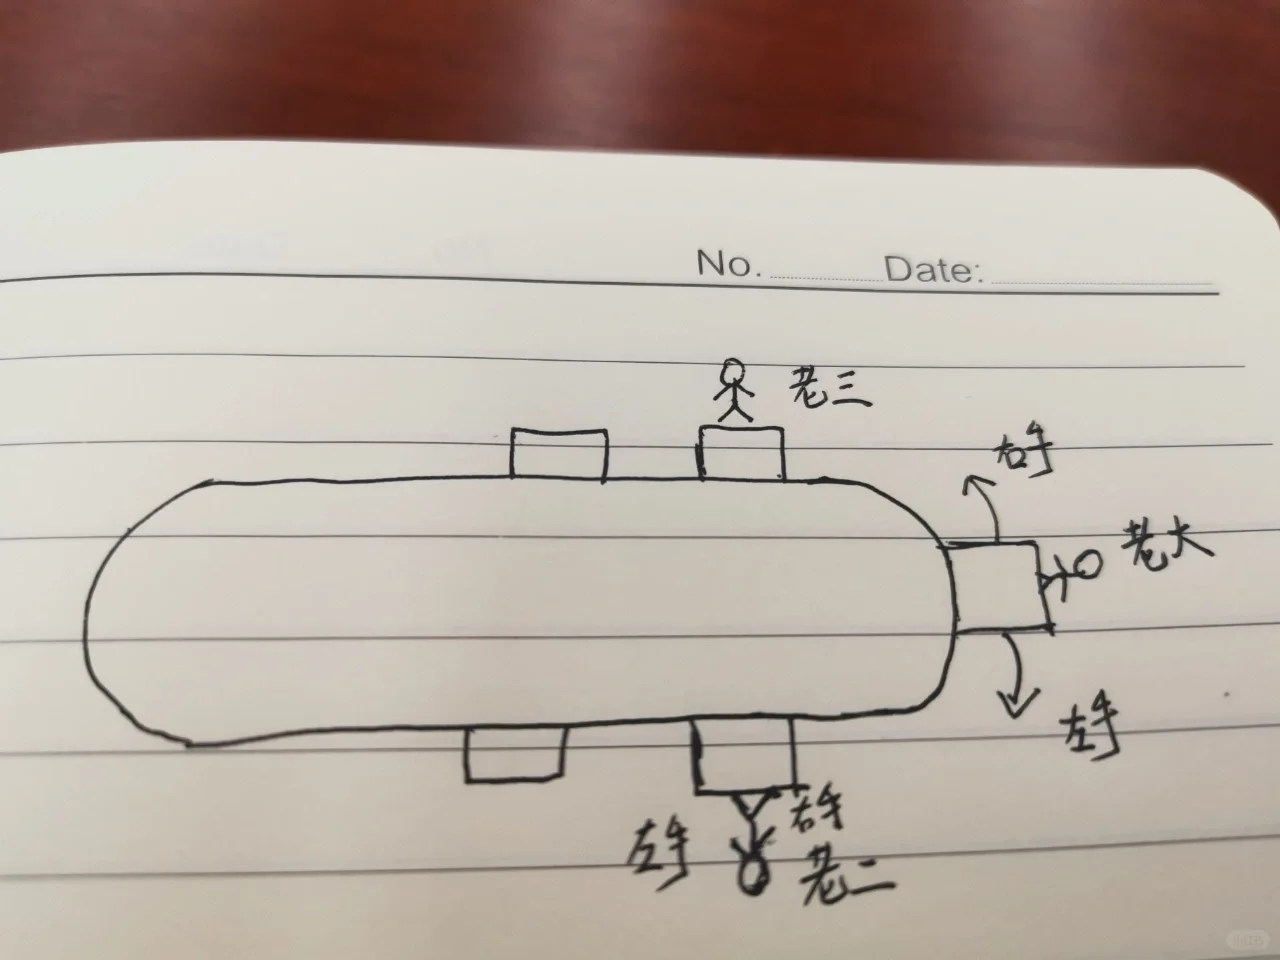 No. Date:
老三
右手
老大
左手
右手
左手
老二